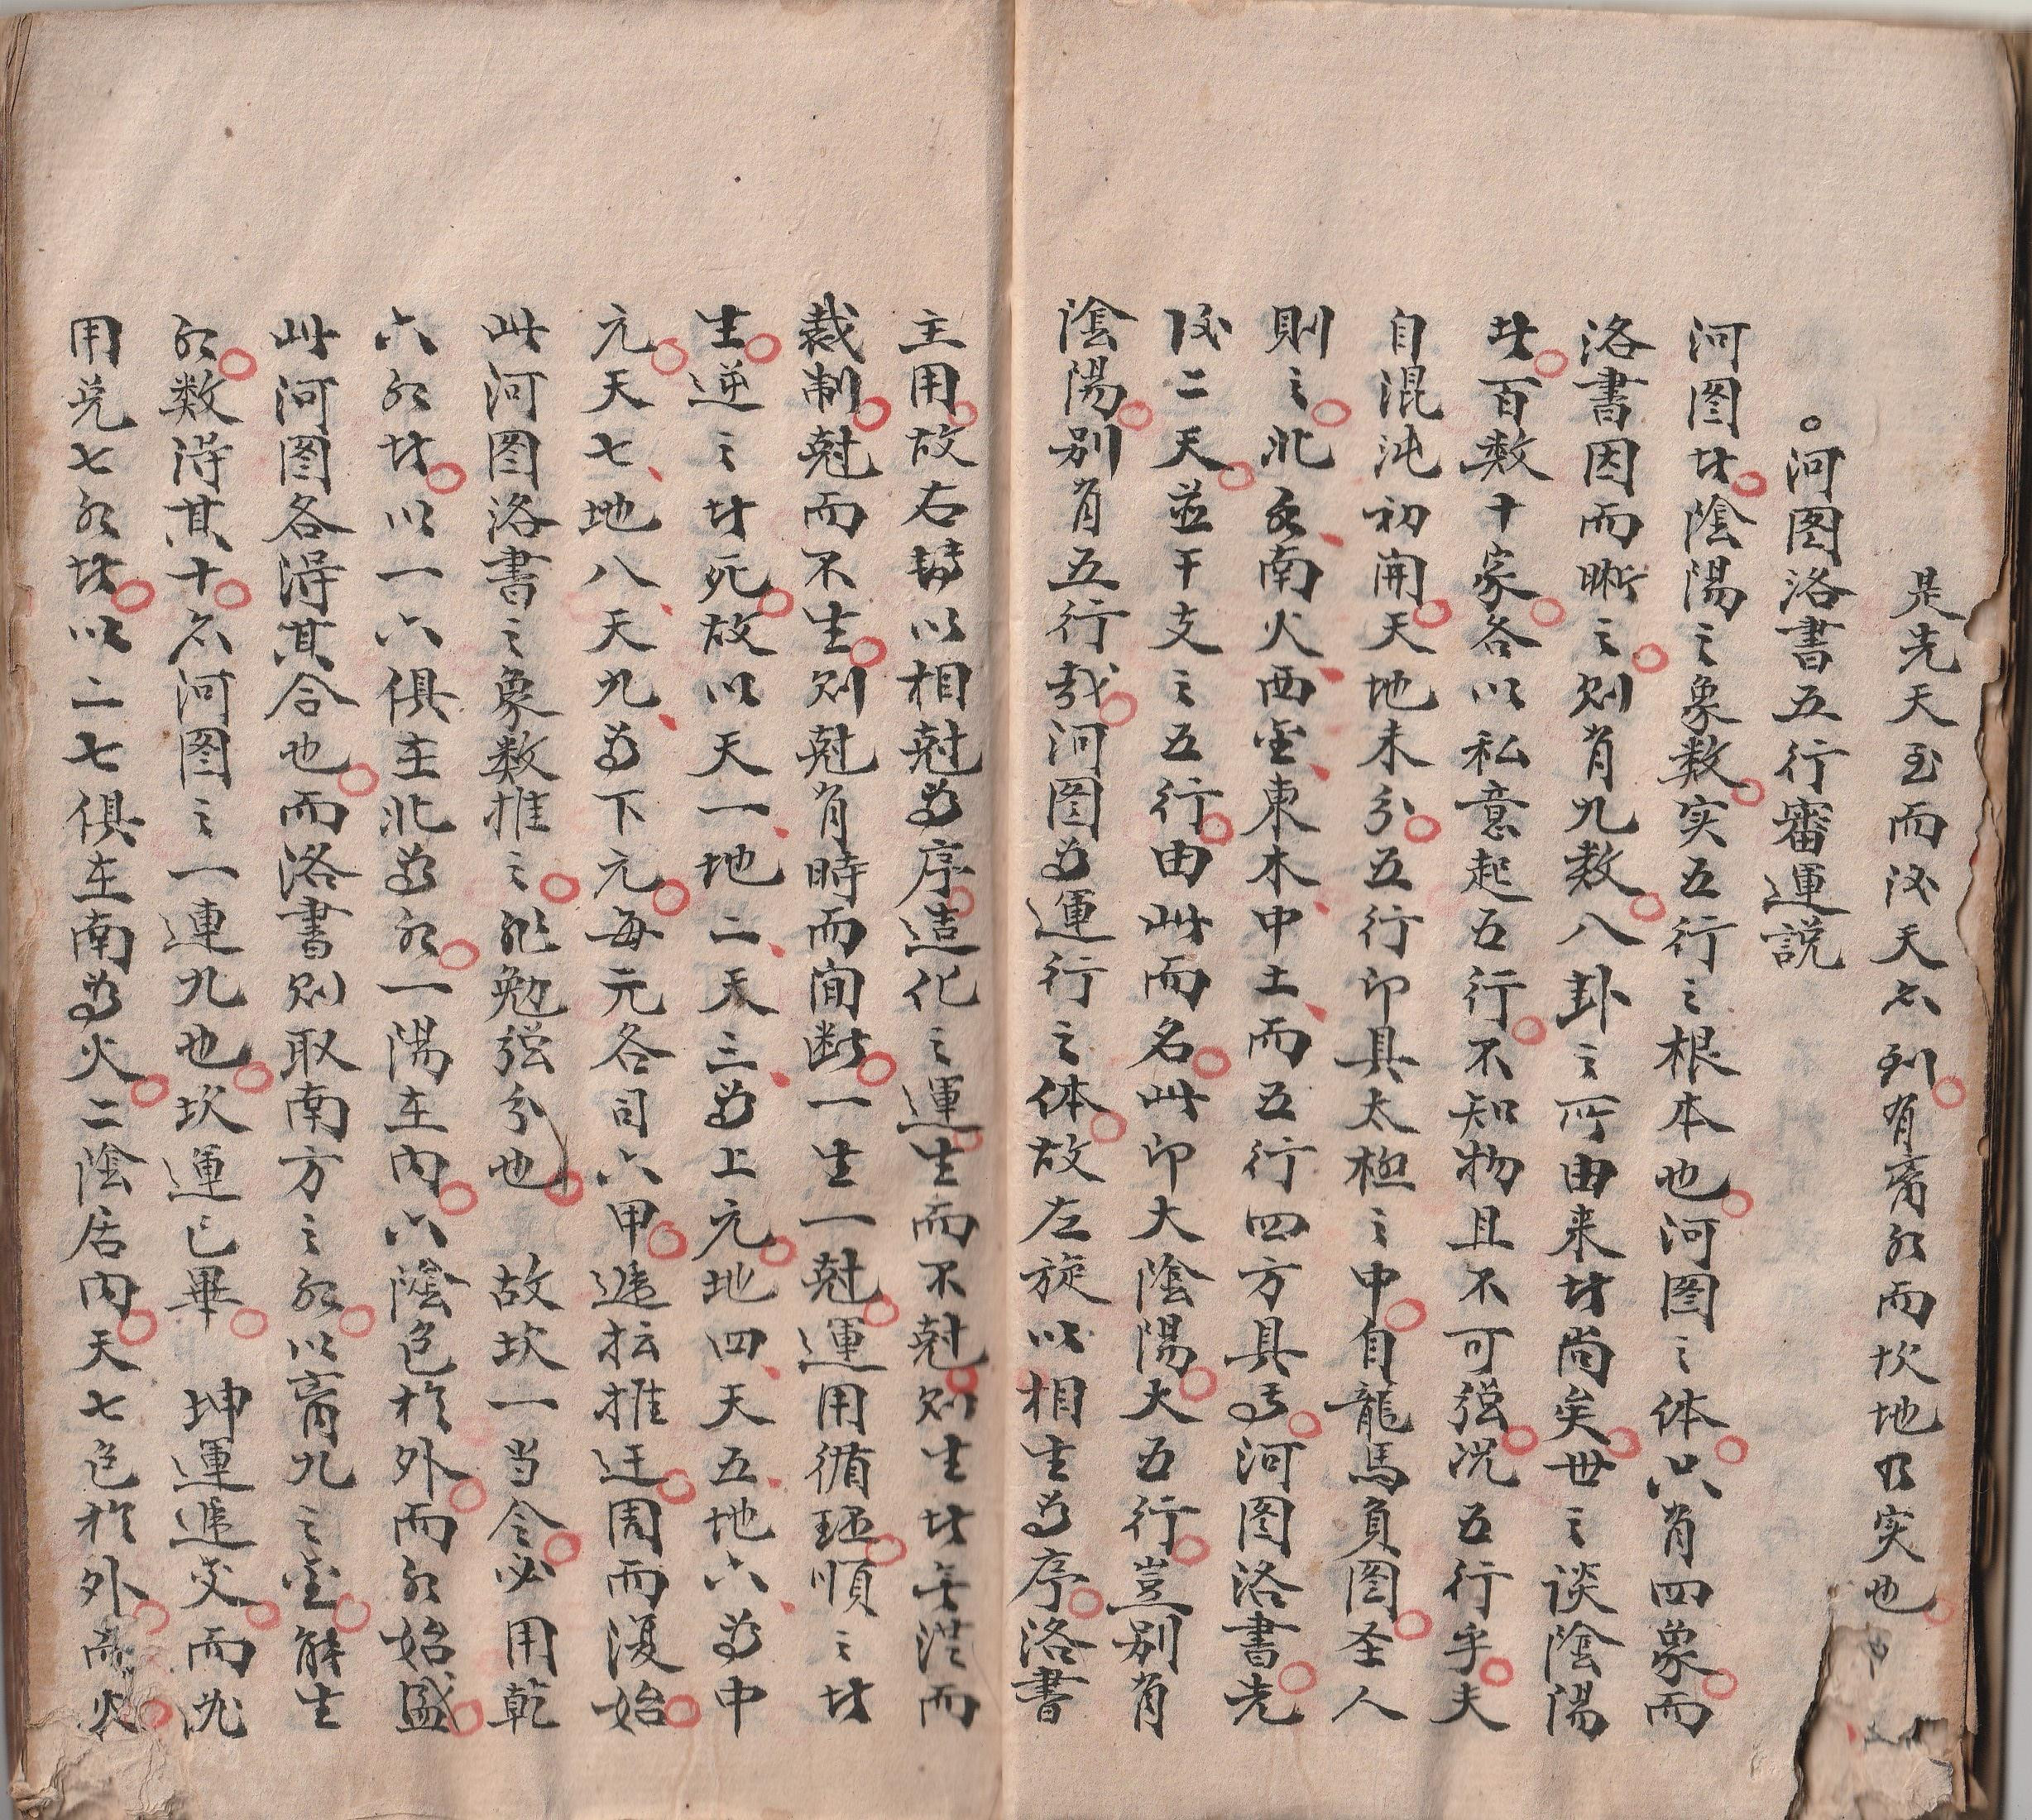 是先天至而後天亦到有斋水而坎地以实也
河图洛書五行審運説
河图者陰陽之象数实五行之根本也河图之体只有四象而
洛書因而晰之则有九数八卦之所由来者尚矣世之谈陰陽
者百数十家各以私意起五行不知物且不可强况五行乎夫
自混沌初開天地未分五行即具太極之中自龍馬負图圣人
則之北水南火西金東木中土而五行四方具焉河图洛書先
後二天並干支之五行由此而名此即大陰陽大五行豈别有
陰陽别有五行哉河图为運行之体故左旋以相生为序洛書
主用故右转以相尅为序造化之運生而不尅则生者无洪而
裁制尅而不生则尅有時而间断一生一尅運用循环順之者
生逆之者死故以天一地二天三为上元地四天五地六为中
元天七地八天九为下元每元各司六甲遞抎推迁周而復始
此河图洛書之象数推之非勉强分也 故坎一当令必用乾
六水者以一六俱在北为水一陽在内六陰包於外而水始盛
此河图各得其合也而洛書则取南方之水以斋九之金觧生
水数得其十亦河图之一連九也坎運已畢 坤運遞交而九
用兑七水者以二七俱在南为火二陰居内天七包於外而火